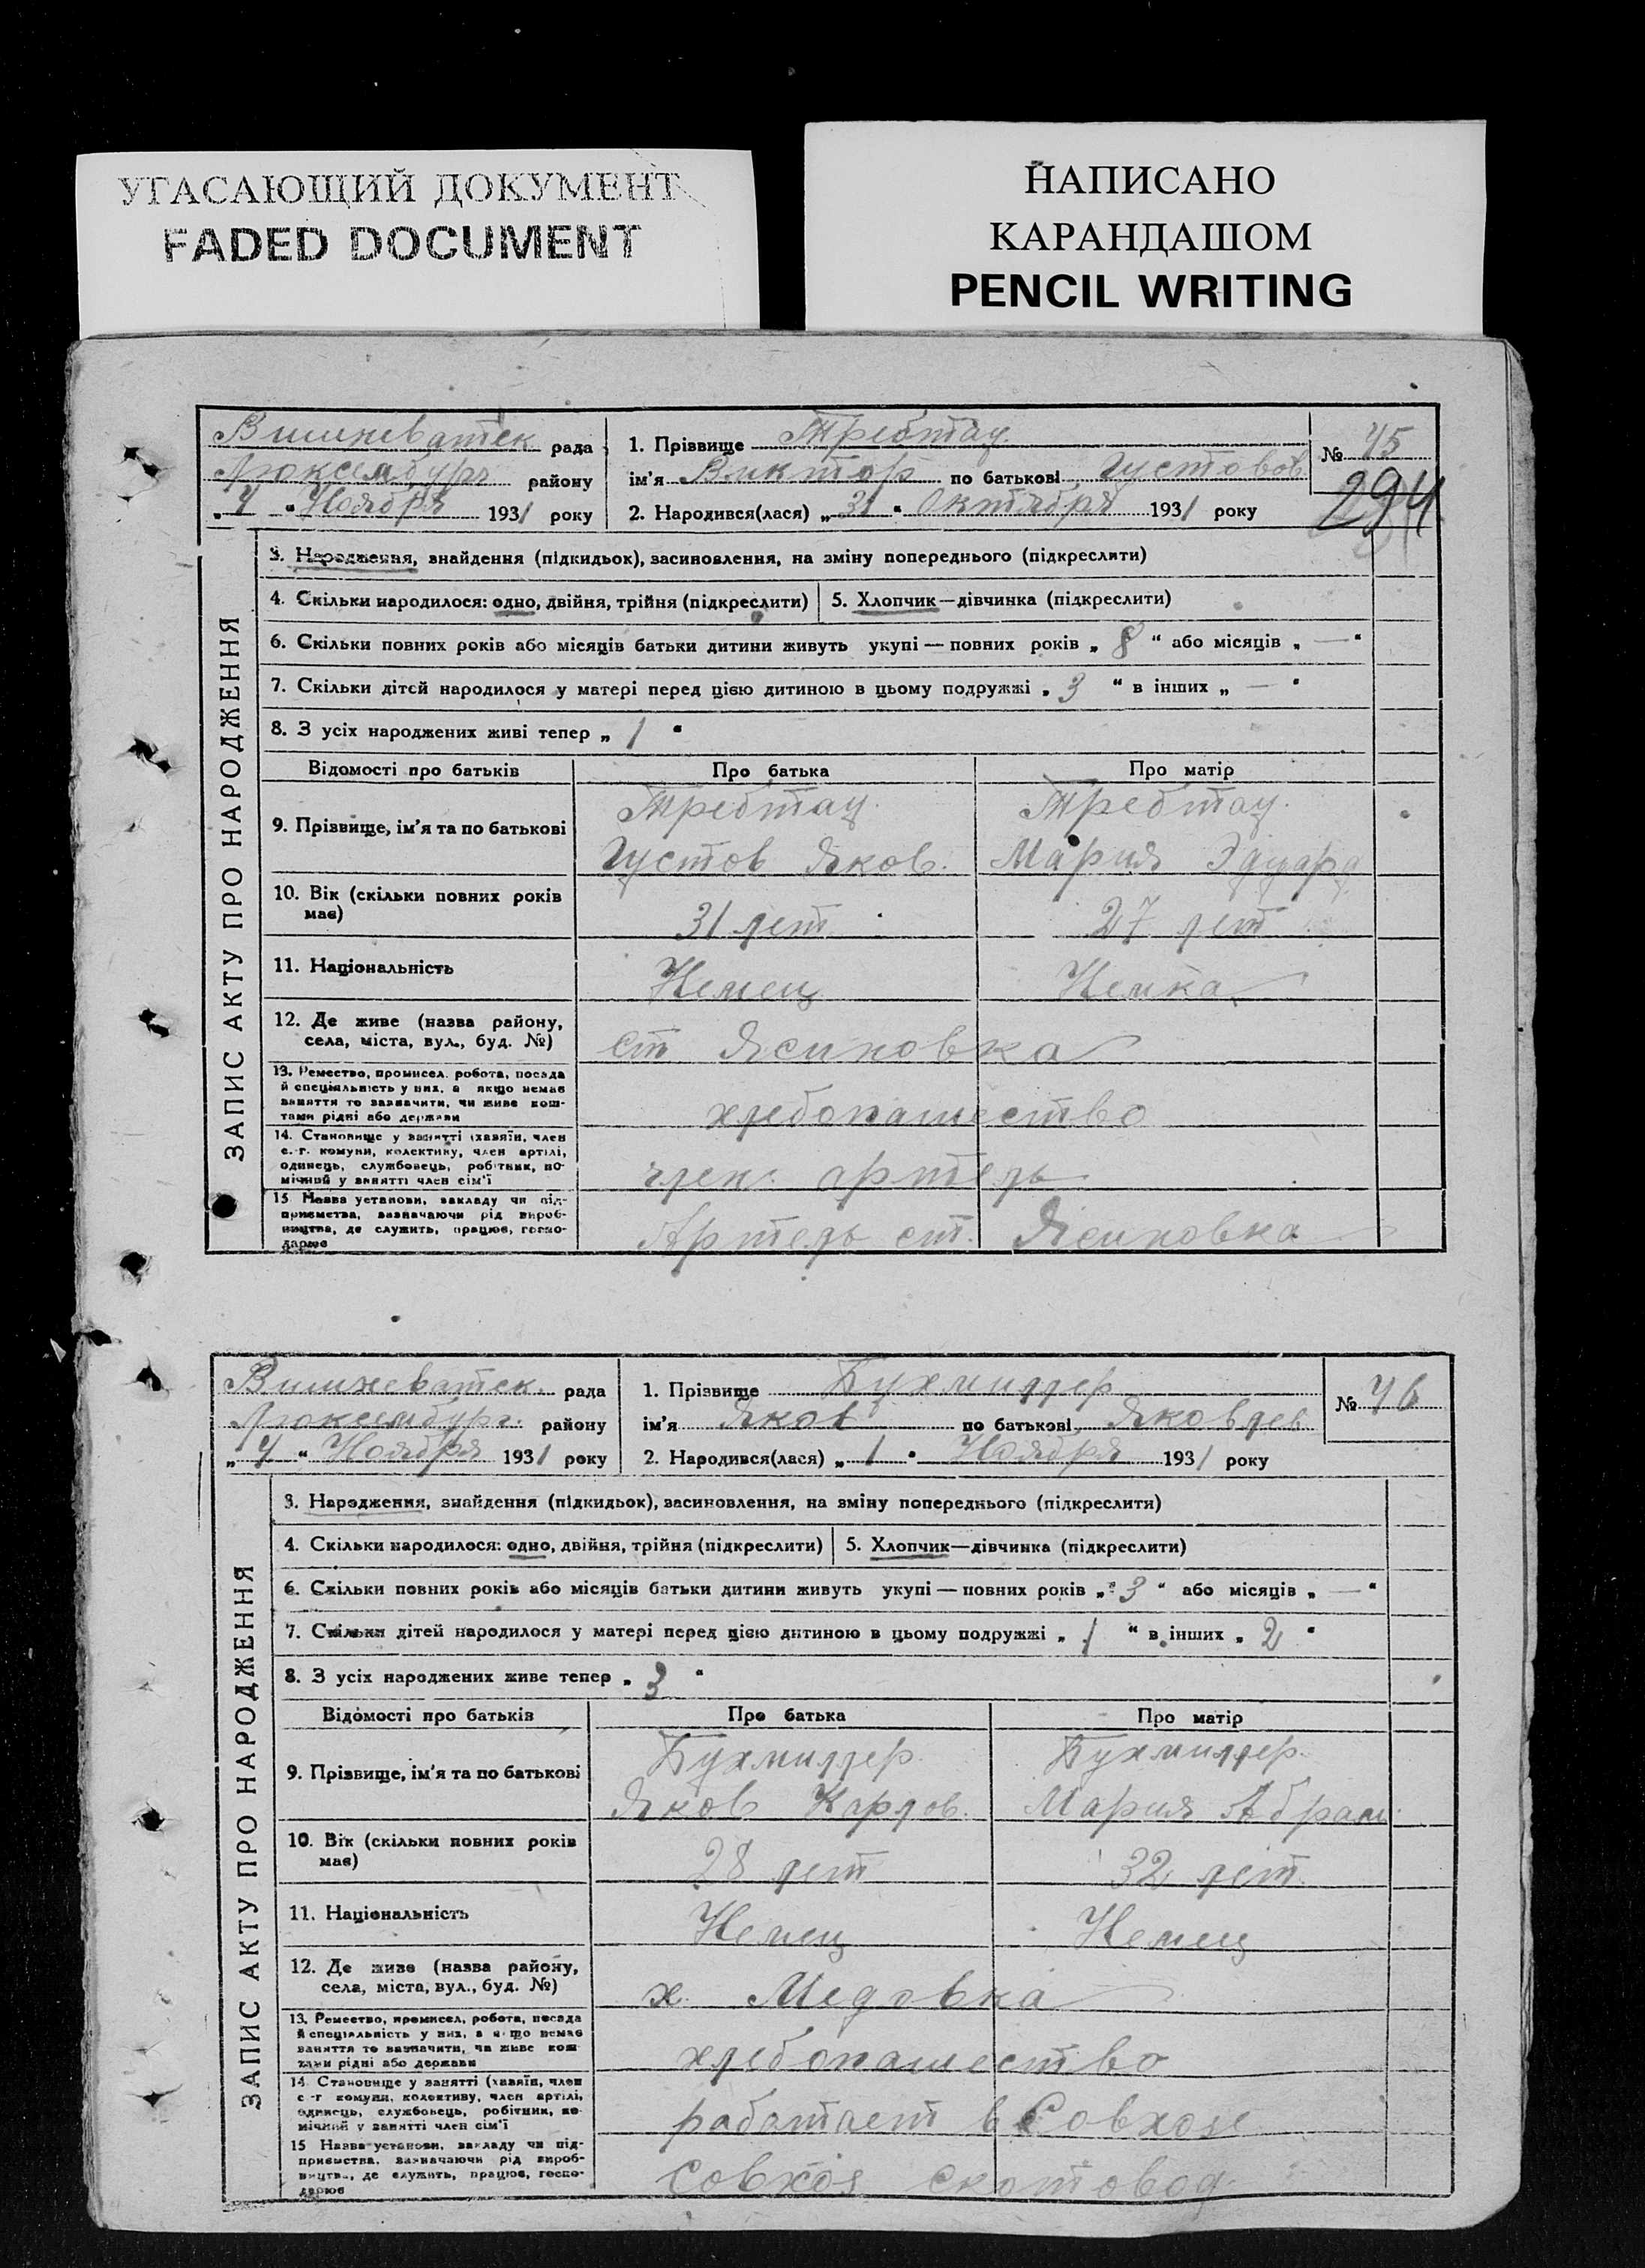 УГАСАЮЩИЙ ДОКУМЕНТ
FADED DOCUMENT
НАПИСАНО
КАРАНДАШОМ
PENCIL WRITING
Вишневатск рада
Люксембург району
„4“ Ноября 1931 року
1. Прізвище Требтау
ім'я Виктор по батькові Густовов.
2. Народився(лася) „31“ Октября 1931 року
№ 45
294
ЗАПИС АКТУ ПРО НАРОДЖЕННЯ
3. Народження, знайдення (підкидьок), засиновлення, на зміну попереднього (підкреслити)
4. Скільки народилося: одно, двійня, трійня (підкреслити) 5. Хлопчик—дівчинка (підкреслити)
6. Скільки повних років або місяців батьки дитини живуть укупі — повних років „8“ або місяців „—“
7. Скільки дітей народилося у матері перед цією дитиною в цьому подружжі „3“ в інших „—“
8. З усіх народжених живі тепер „1“
Відомості про батьків Про батька Про матір
9. Прізвище, ім'я та по батькові
Требтау. Требтау.
Густов Яков. Мария Эдуард
10. Вік (скільки повних років
має)
31 лет 27 лет
11. Національність Немец Немка
12. Де живе (назва району,
села, міста, вул., буд. №)
ст Ясиновка
13. Ремество, промисел, робота, посада
й спеціяльність у них, а якщо немає
заняття то зазначити, чи живе кош-
тами рідні або держави
хлебопашество
14. Становище у занятті (хазяїн, член
с.-г. комуни, колективу, член артілі,
одинець, службовець, робітник, по-
мічний у занятті член сім'ї
член артель
15 Назва установи, закладу чи під-
приємства, зазначаючи рід вироб-
ництва, де служить, працює, госпо-
дарює
Артель ст. Ясиновка
Вишневатск. рада
Люксембург. району
„4“ Ноября 1931 року
1. Прізвище Бухмиллер
ім'я Яков по батькові Яковлев
2. Народився(лася) „1“ Ноября 1931 року
№ 46
ЗАПИС АКТУ ПРО НАРОДЖЕННЯ
3. Народження, знайдення (підкидьок), засиновлення, на зміну попереднього (підкреслити)
4. Скільки народилося: одно, двійня, трійня (підкреслити) 5. Хлопчик—дівчинка (підкреслити)
6. Скільки повних років або місяців батьки дитини живуть укупі — повних років „3“ або місяців „—“
7. Скільки дітей народилося у матері перед цією дитиною в цьому подружжі „1“ в інших „2“
8. З усіх народжених живе тепер „3“
Відомості про батьків Про батька Про матір
9. Прізвище, ім'я та по батькові
Бухмиллер. Бухмиллер.
Яков Карлов. Мария Абрам.
10. Вік (скільки повних років
має)
28 лет 32 лет.
11. Національність Немец Немец
12. Де живе (назва району,
села, міста, вул., буд. №)
х. Медовка
13. Ремество, промисел, робота, посада
й спеціяльність у них, а якщо немає
заняття то зазначити, чи живе кош-
тами рідні або держави
хлебопашество
14. Становище у занятті (хазяїн, член
с-г комуни, колективу, член артілі,
одинець, службовець, робітник, по-
мічний у занятті член сім'ї
работает в Совхозе
15 Назва установи, закладу чи під-
приємства, зазначаючи рід вироб-
ництва, де служить, працює, госпо-
дарює
Совхоз скотовод.